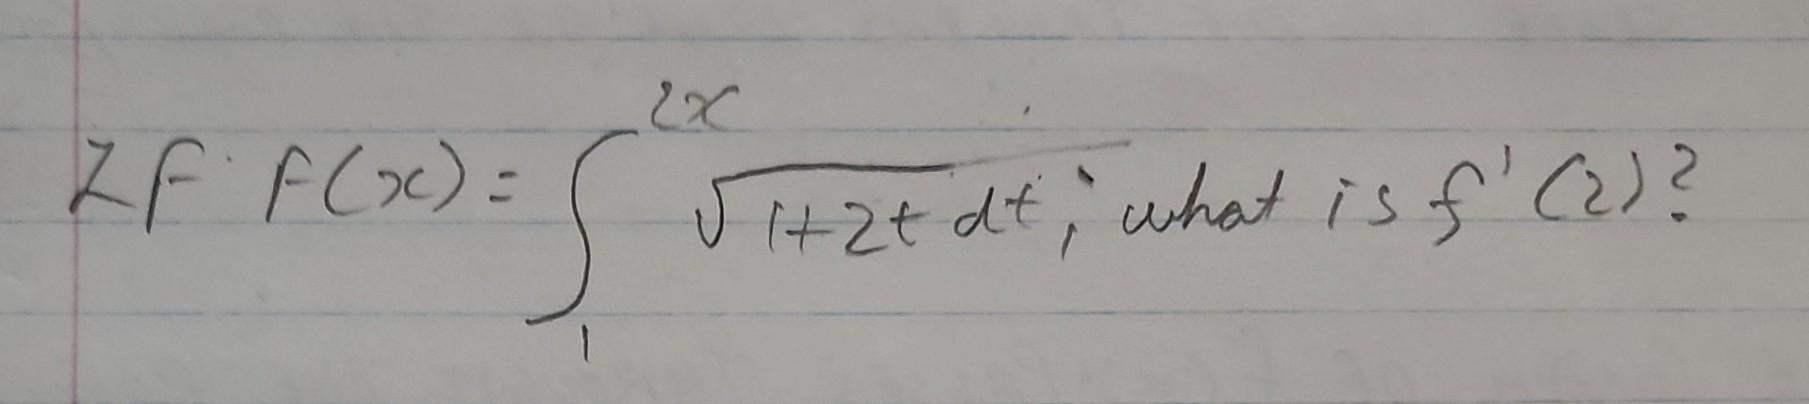 If f(x) = ∫₁²ˣ √1+2t dt, what is f'(2)?